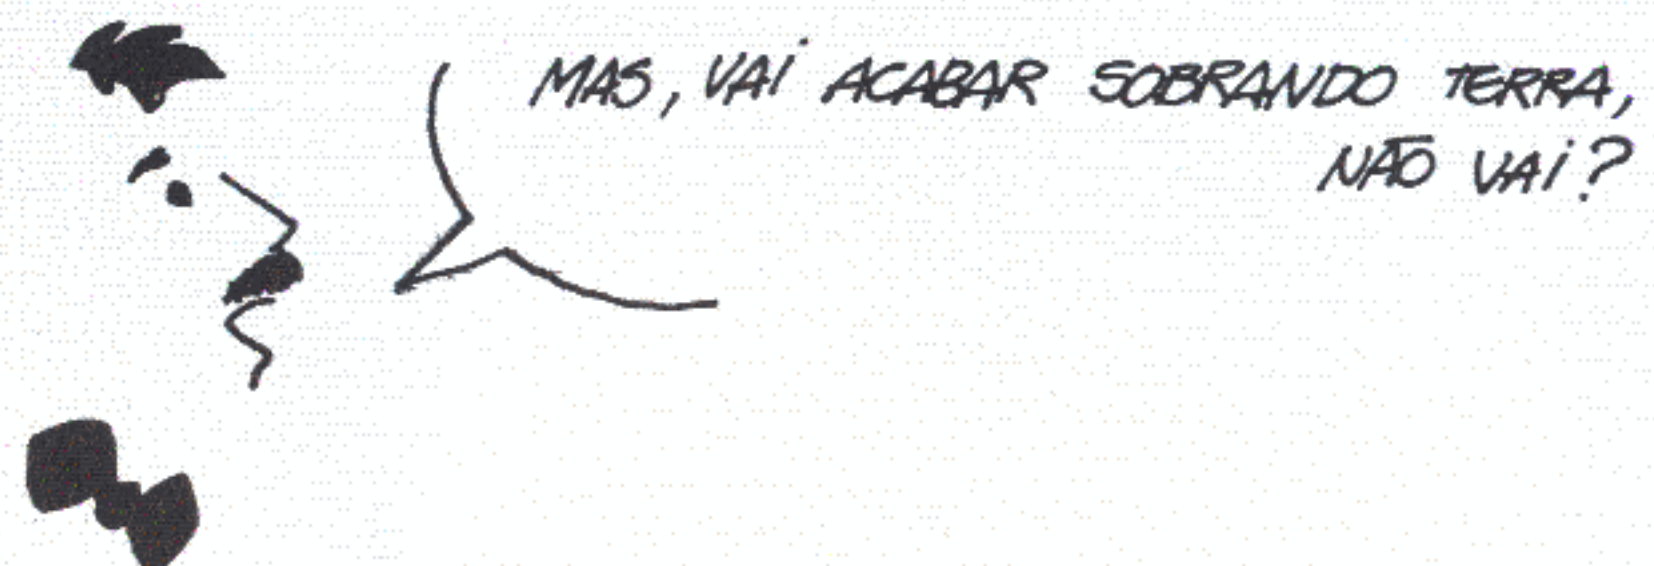 MAS, VAI ACABAR SOBRANDO TERRA,
NÃO VAI?